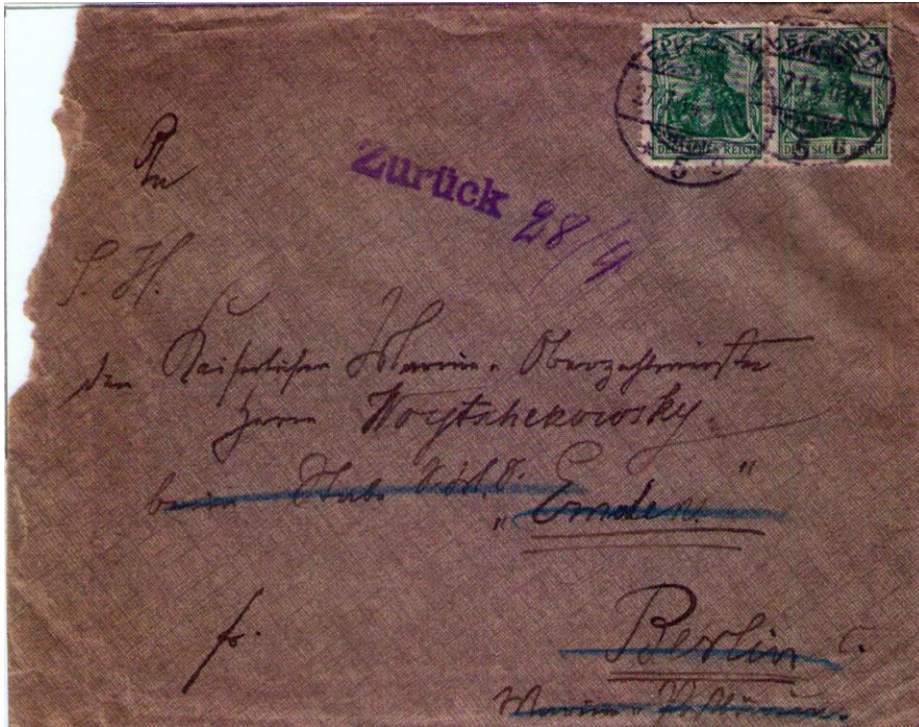 DEUTSCHES REICH DEUTSCHES REICH
An
Zurück 28/4
S. H.
den Kaiserlichen Marine-Oberzahlmeister
Herrn Woytschekowsky
beim Stabe S.M.S.
"Emden"
fr.
Berlin C.
Marine-